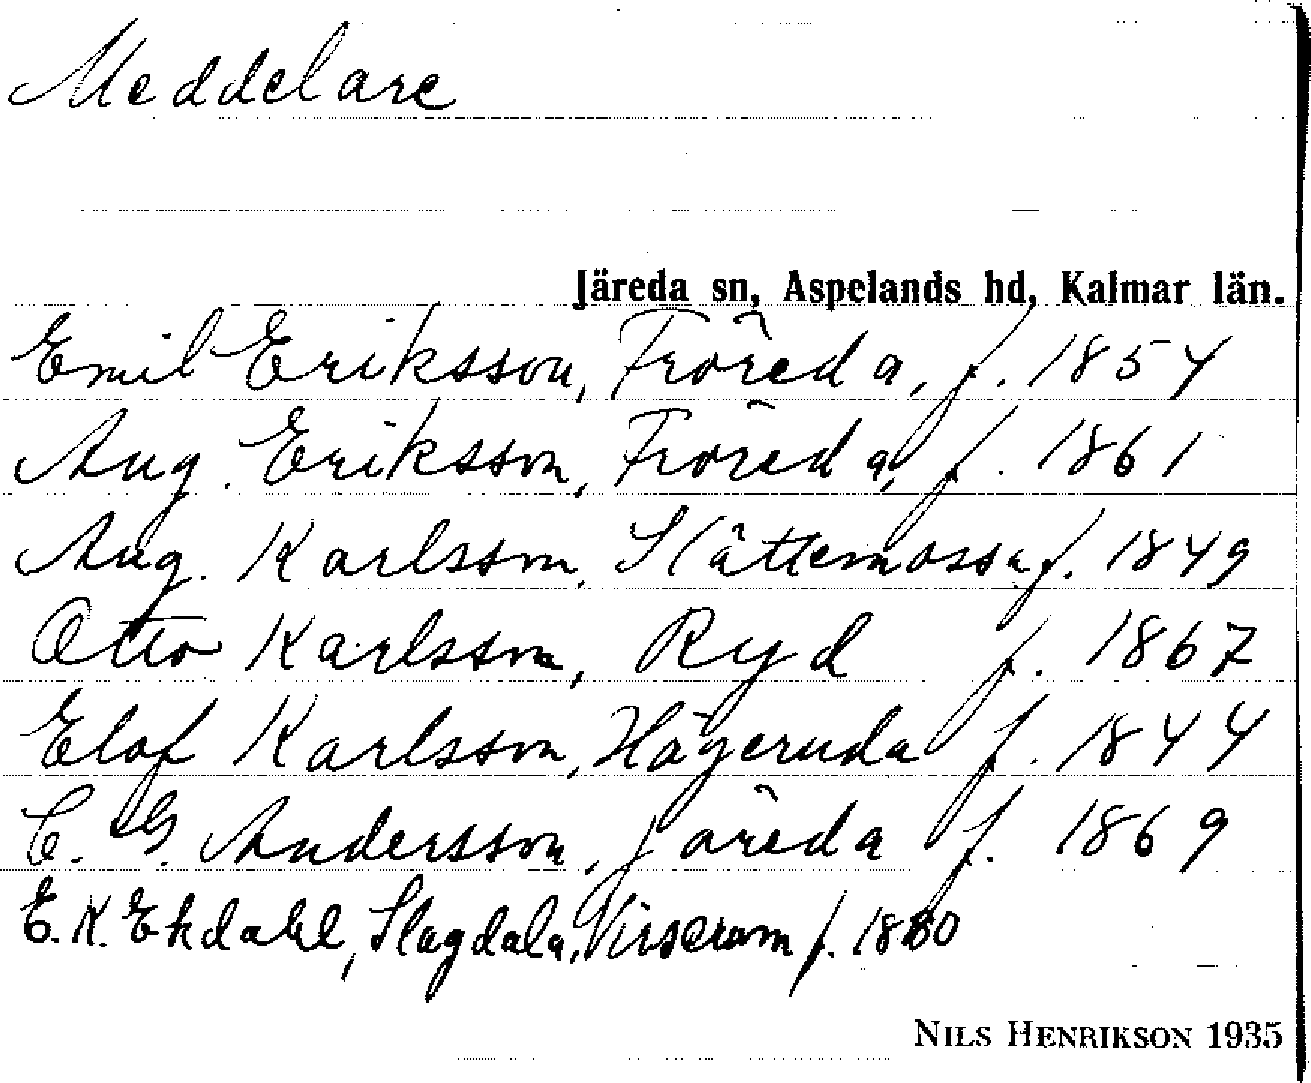 Meddelare
Järeda sn, Aspelands hd, Kalmar län.
Emil Eriksson, Fröreda, f. 1854
Aug. Eriksson, Fröreda, f. 1861
Aug. Karlsson, Slättemossa f. 1849
Otto Karlsson, Ryd f. 1867
Elof Karlsson, Högeruda f. 1844
C. G. Andersson, Järeda f. 1869
E. K. Ekdahl, Slagdala, Virserum f. 1860
NILS HENRIKSON 1935